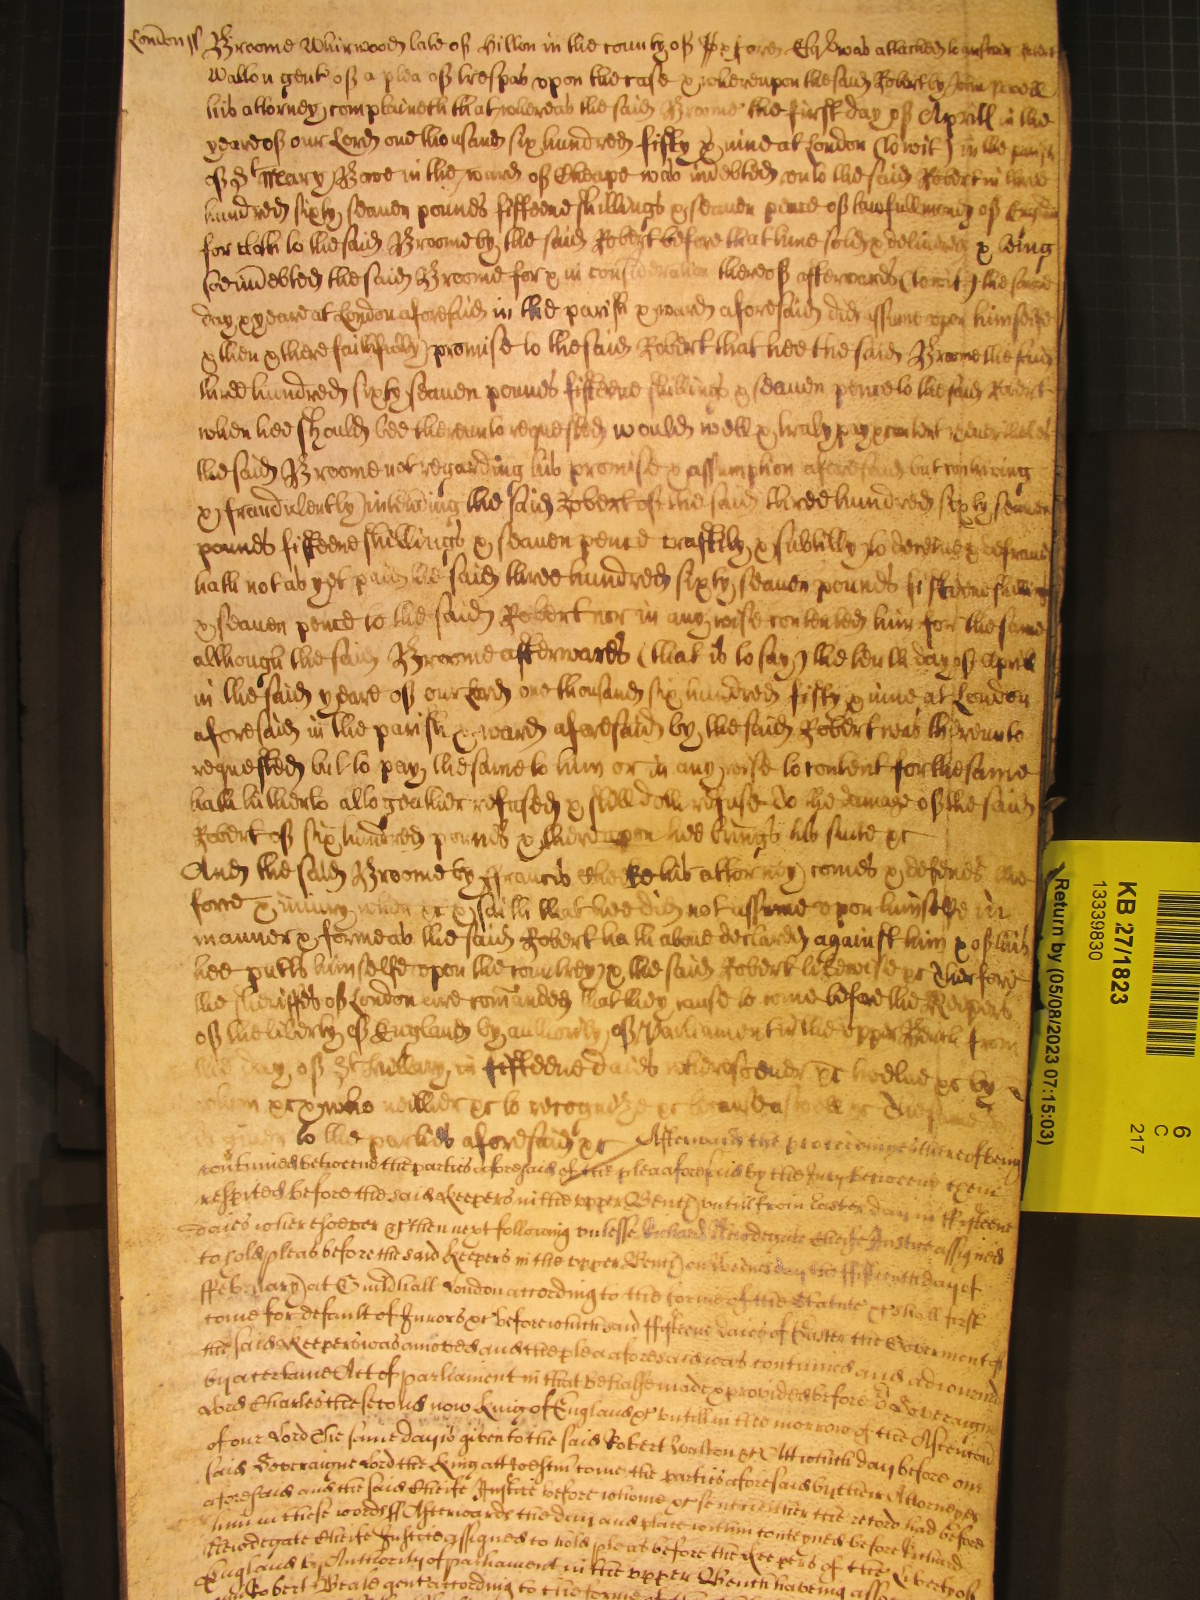 London ss Broome Whirwood late of Hilton in the county of Oxford Esqr was attached to answer Robert
Wallon gent of a plea of trespas upon the case & whereupon the said Robert by John Powell
his attorney complaineth that whereas the said Broome the first day of Aprill in the
yeare of our Lord one thousand six hundred fifty & nine at London (to wit) in the parish
of St Mary Bowe in the ward of Cheape was indebted unto the said Robert in three
hundred sixty seaven pounds fifteene shillings & seaven pence of lawfull mony of England
for cloth to the said Broome by the said Robert before that time sold & delivered & being
soe indebted the said Broome for & in consideration thereof afterwards (to wit) the same
day & yeare at London aforesaid in the parish & ward aforesaid did assume upon himselfe
& then & there faithfully promise to the said Robert that hee the said Broome the said
three hundred sixty seaven pounds fifteene shillings & seaven pence to the said Robert
when hee should bee thereunto requested would well & truly pay & content neverthelesse
the said Broome not regarding his promise & assumption aforesaid but contriving
& fraudulently intending the said Robert of the said three hundred sixty seaven
pounds fifteene shillings & seaven pence craftily & subtilly to deceive & defraud
hath not as yet paid the said three hundred sixty seaven pounds fifteene shillings
& seaven pence to the said Robert nor in any wise contented him for the same
although the said Broome afterwards (that is to say) the tenth day of Aprill
in the said yeare of our Lord one thousand six hundred fifty & nine at London
aforesaid in the parish & ward aforesaid by the said Robert was thereunto
requested but to pay the same to him or in any wise to content for the same
hath hitherto altogeather refused & still doth refuse to the damage of the said
Robert of six hundred pounds & thereupon hee brings his suite &c
And the said Broome by Francis his attorney comes & defends the
force & iniury when &c & saith that hee did not assume upon himselfe in
manner & forme as the said Robert hath above declared against him & of this
hee putts himselfe upon the countrey & the said Robert likewise &c Therfore
the sheriffes of London are comanded that they cause to come before the Keepers
of the liberty of England by authority of Parliament in the upper Bench from
the day of St Hillary in fifteene daies wheresoever &c twelve &c by
whom &c & who neither &c to recognize &c because aswell &c The same day
is given to the parties aforesaid &c Afterwards the processe thereof being
continued betweene the parties aforesaid of the plea aforesaid by the Jury betweene them
respited before the said Keepers in the upper Bench untill from Easter day in fifteene
daies wheresoever &c then next following unlesse Richard Newdegate Cheife Justice assigned
to hold pleas before the said Keepers in the upper Bench on Wednesday the fifteenth day of
ffebruary at Guildhall London according to the forme of the Statute &c shall first
come for default of Jurors &c before which said fifteene daies of Easter the Goverment of
the said Keepers was amoved and the plea aforesaid was continued and adiourned
by a certaine Act of parliament in that behalfe made & provided before our Soveraigne
Lord Charles the second now King of England &c untill in the morrow of the Ascention
of our Lord The same day is given to the said Robert Wallon &c Att which day before our
said Soveraigne Lord the King att Westm come the parties aforesaid by their Attorneyes
aforesaid and the said Cheife Justice before whome &c sent hither the record had before
him in these words ss Afterwards the day and place within conteyned before Richard
Newdegate Cheife Justice assigned to hold pleas before the Keepers of the Liberty of
England by Authority of parliament in the upper Bench haveing
Robert Beale gent according to the forme
KB 27/1823
13339830
Return by (05/08/2023 07:15:03)
6
C
217